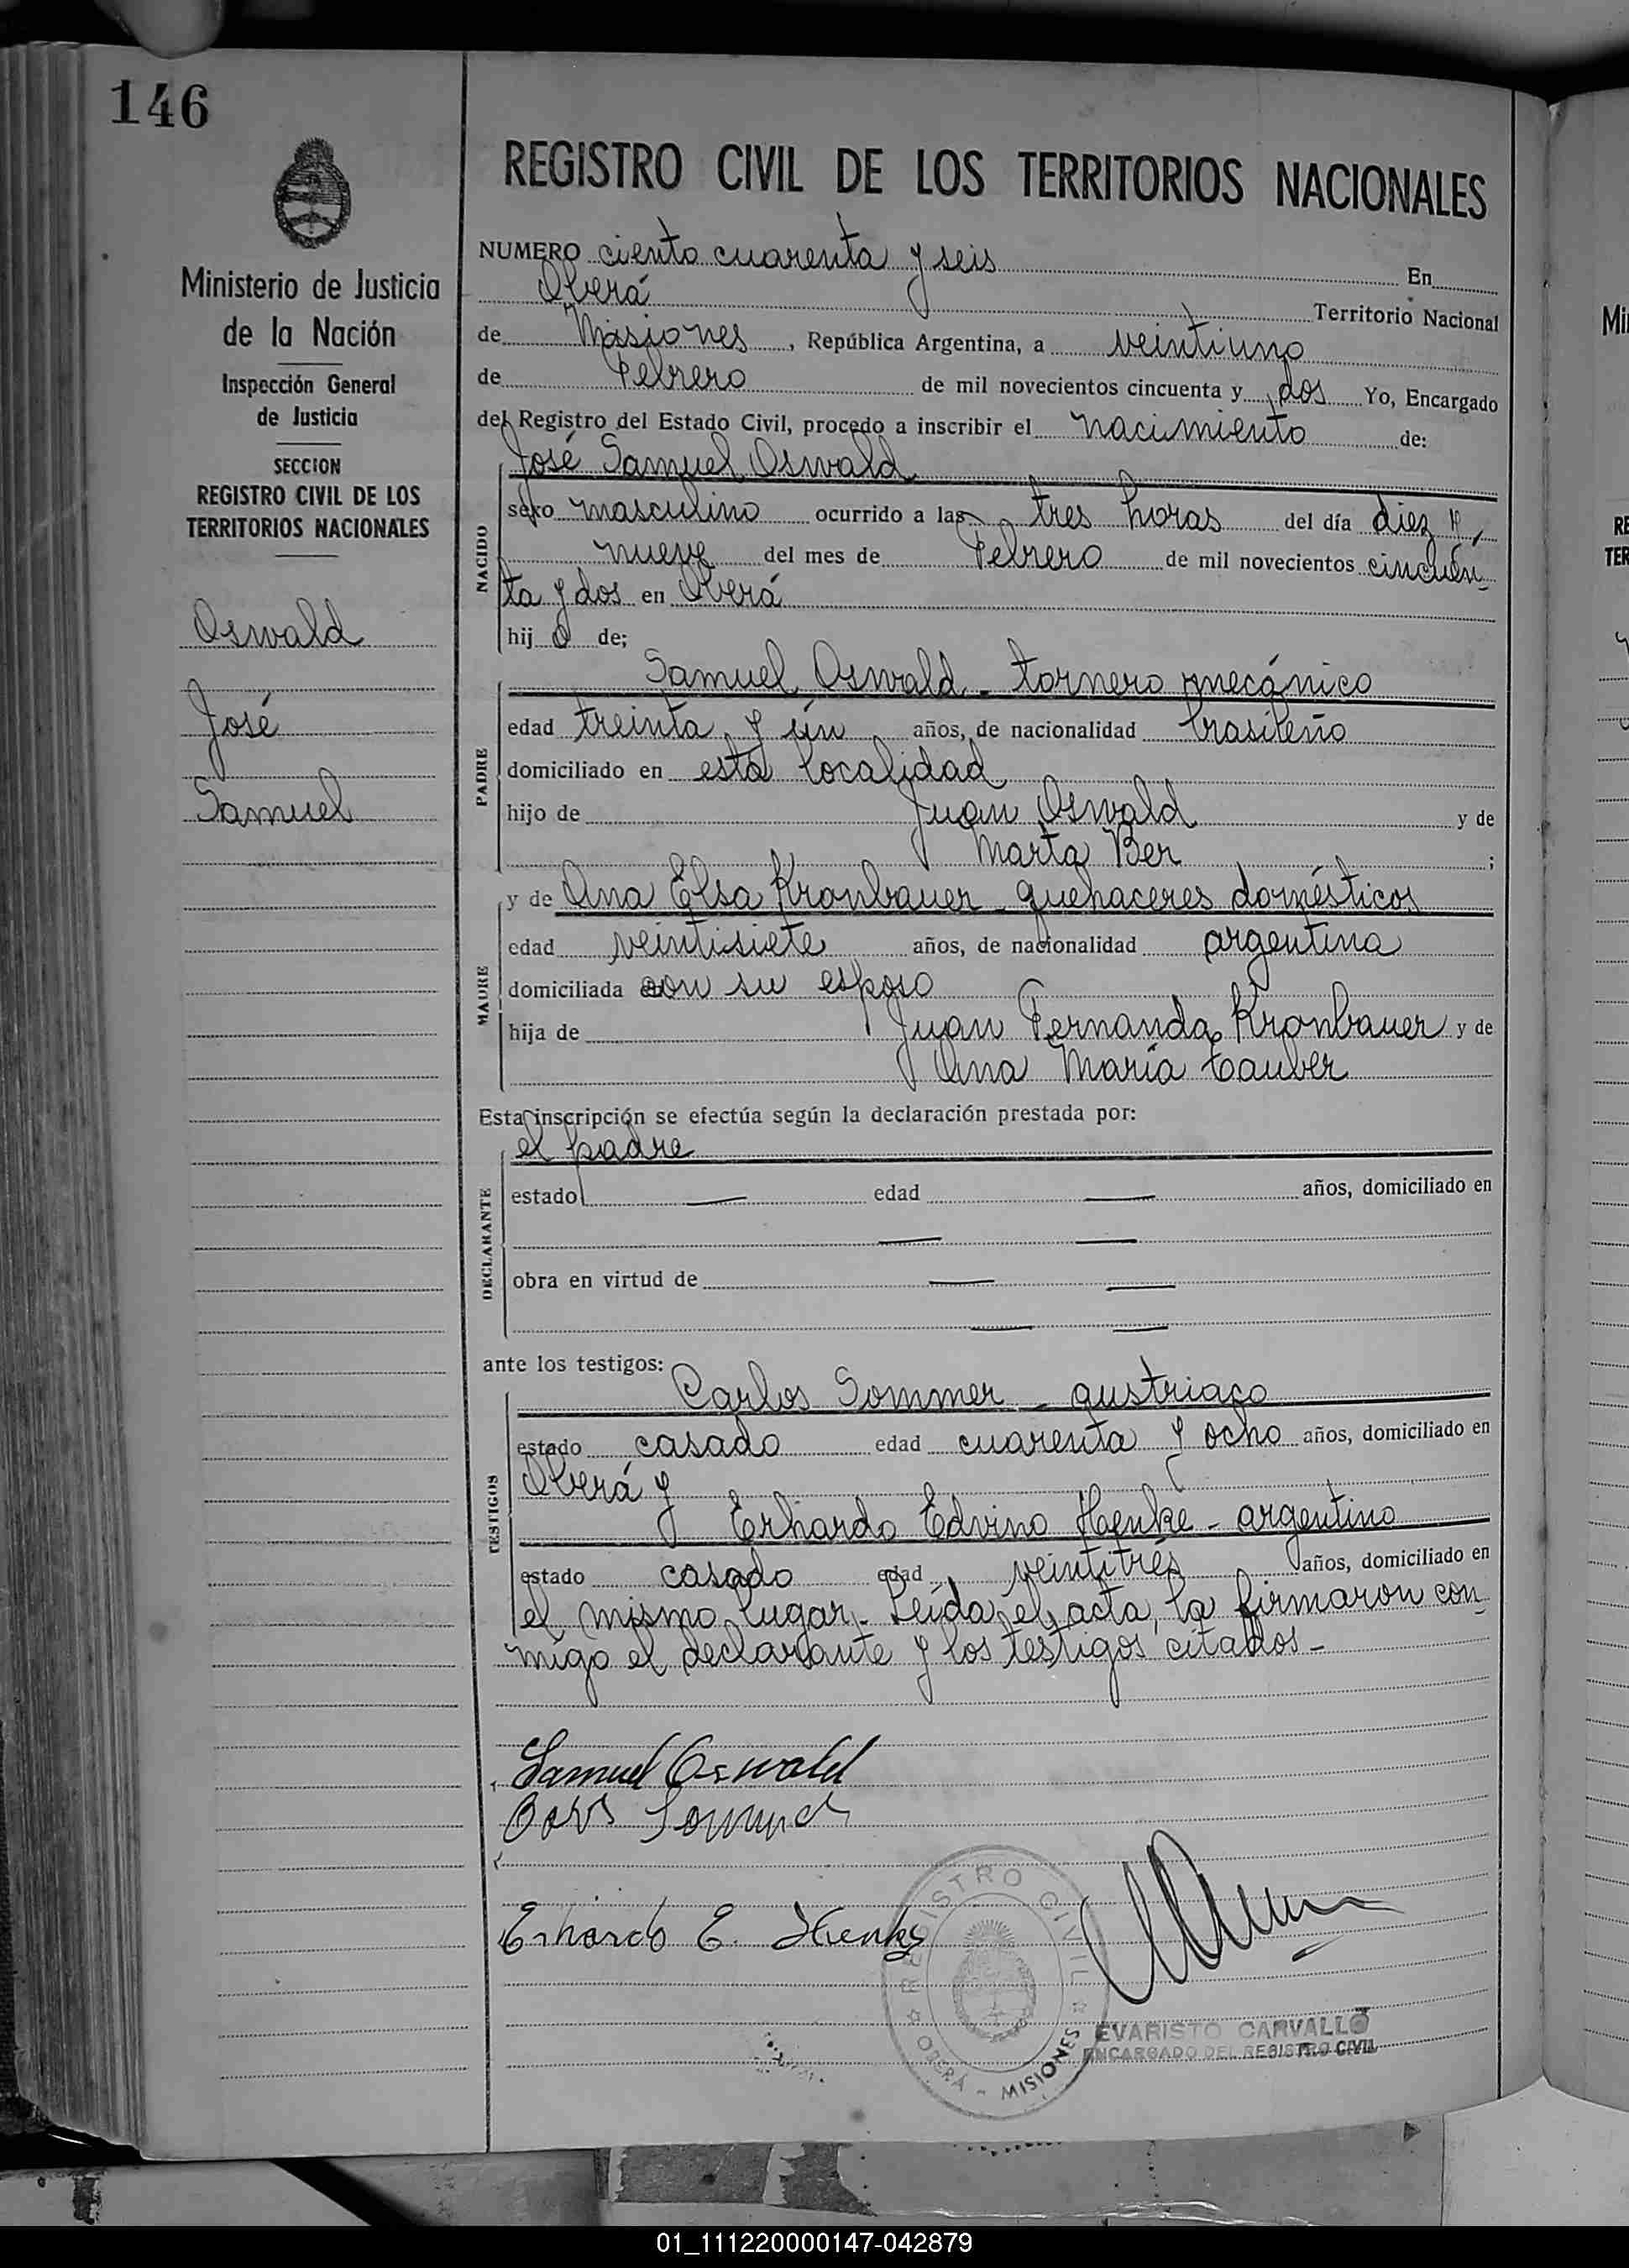 146
Ministerio de Justicia
de la Nación
Inspección General
de Justicia
SECCION
REGISTRO CIVIL DE LOS
TERRITORIOS NACIONALES
Oswald
José
Samuel
REGISTRO CIVIL DE LOS TERRITORIOS NACIONALES
NUMERO ciento cuarenta y seis En
Oberá Territorio Nacional
de Misiones, República Argentina, a veintiuno
de Febrero de mil novecientos cincuenta y dos Yo, Encargado
del Registro del Estado Civil, procedo a inscribir el nacimiento de:
José Samuel Oswald
NACIDO
sexo masculino ocurrido a las tres horas del día diez y
nueve del mes de Febrero de mil novecientos cincuen
ta y dos en Oberá
hij o de;
Samuel Oswald - tornero mecánico
PADRE
edad treinta y ún años, de nacionalidad brasileño
domiciliado en esta localidad
hijo de Juan Oswald y de
Marta Ber ;
y de Ana Elsa Kronbauer - quehaceres domésticos
MADRE
edad veintisiete años, de nacionalidad argentina
domiciliada con su esposo
hija de Juan Fernando Kronbauer y de
Ana María Tauber
Esta inscripción se efectúa según la declaración prestada por:
el padre
DECLARANTE
estado — edad — años, domiciliado en
— —
obra en virtud de — —
— —
ante los testigos:
Carlos Sommer - austriaco
TESTIGOS
estado casado edad cuarenta y ocho años, domiciliado en
Oberá y
Erhardo Edvino Henke - argentino
estado casado edad veintitrés años, domiciliado en
el mismo lugar - Leída el acta, la firmaron con
migo el declarante y los testigos citados -
Samuel Oswald
Erhardo E. Henke
REGISTRO CIVIL
OBERÁ - MISIONES
EVARISTO CARVALLO
ENCARGADO DEL REGISTRO CIVIL
01_111220000147-042879